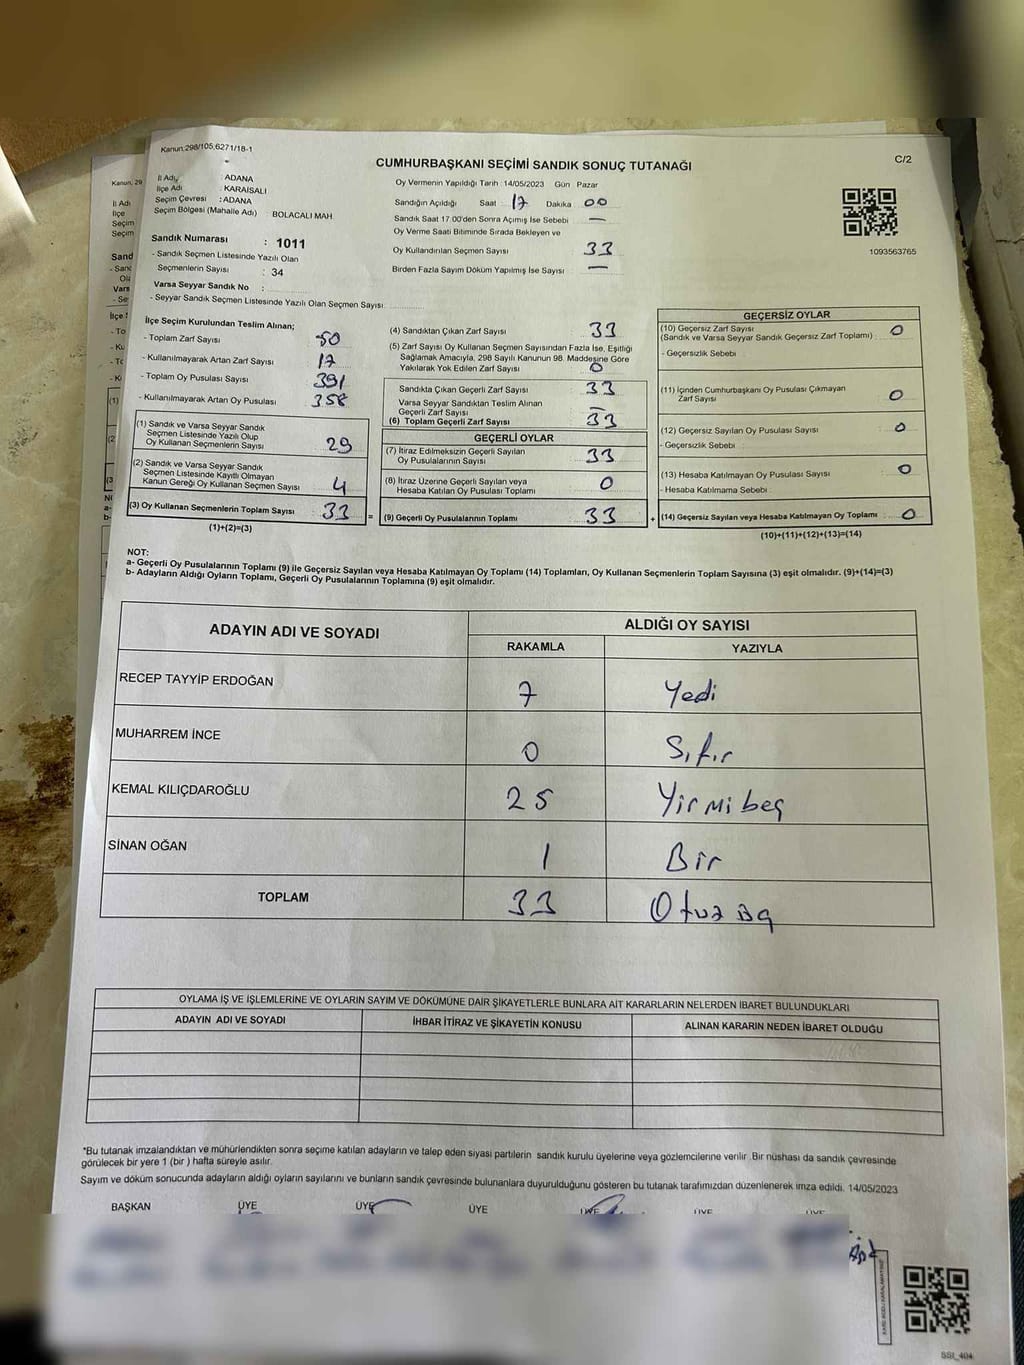 Kanun,298/105,6271/18-1
CUMHURBAŞKANI SEÇİMİ SANDIK SONUÇ TUTANAĞI
C/2
İl Adı : ADANA
İlçe Adı : KARAİSALI
Seçim Çevresi : ADANA
Seçim Bölgesi (Mahalle Adı) : BOLACALI MAH.
Sandık Numarası : 1011
- Sandık Seçmen Listesinde Yazılı Olan
Seçmenlerin Sayısı : 34
Varsa Seyyar Sandık No :
- Seyyar Sandık Seçmen Listesinde Yazılı Olan Seçmen Sayısı
Oy Vermenin Yapıldığı Tarih : 14/05/2023 Gün Pazar
Sandığın Açıldığı Saat : 17 Dakika 00
Sandık Saat 17.00'den Sonra Açımış İse Sebebi —
Oy Verme Saati Bitiminde Sırada Bekleyen ve
Oy Kullandırılan Seçmen Sayısı 33
Birden Fazla Sayım Döküm Yapılmış İse Sayısı —
1093563765
İlçe Seçim Kurulundan Teslim Alınan;
- Toplam Zarf Sayısı : 50
- Kullanılmayarak Artan Zarf Sayısı : 17
- Toplam Oy Pusulası Sayısı : 391
- Kullanılmayarak Artan Oy Pusulası : 358
(1) Sandık ve Varsa Seyyar Sandık
Seçmen Listesinde Yazılı Olup
Oy Kullanan Seçmenlerin Sayısı 29
(2) Sandık ve Varsa Seyyar Sandık
Seçmen Listesinde Kayıtlı Olmayan
Kanun Gereği Oy Kullanan Seçmen Sayısı 4
(3) Oy Kullanan Seçmenlerin Toplam Sayısı 33
(1)+(2)=(3)
(4) Sandıktan Çıkan Zarf Sayısı : 33
(5) Zarf Sayısı Oy Kullanan Seçmen Sayısından Fazla İse, Eşitliği
Sağlamak Amacıyla, 298 Sayılı Kanunun 98. Maddesine Göre
Yakılarak Yok Edilen Zarf Sayısı : 0
Sandıkta Çıkan Geçerli Zarf Sayısı : 33
Varsa Seyyar Sandıktan Teslim Alınan
Geçerli Zarf Sayısı : —
(6) Toplam Geçerli Zarf Sayısı : 33
GEÇERLİ OYLAR
(7) İtiraz Edilmeksizin Geçerli Sayılan
Oy Pusulalarının Sayısı : 33
(8) İtiraz Üzerine Geçerli Sayılan veya
Hesaba Katılan Oy Pusulası Toplamı : 0
= (9) Geçerli Oy Pusulalarının Toplamı : 33
GEÇERSİZ OYLAR
(10) Geçersiz Zarf Sayısı
(Sandık ve Varsa Seyyar Sandık Geçersiz Zarf Toplamı) : 0
- Geçersizlik Sebebi :
(11) İçinden Cumhurbaşkanı Oy Pusulası Çıkmayan
Zarf Sayısı : 0
(12) Geçersiz Sayılan Oy Pusulası Sayısı : 0
- Geçersizlik Sebebi :
(13) Hesaba Katılmayan Oy Pusulası Sayısı : 0
- Hesaba Katılmama Sebebi :
+ (14) Geçersiz Sayılan veya Hesaba Katılmayan Oy Toplamı : 0
(10)+(11)+(12)+(13)=(14)
NOT:
a- Geçerli Oy Pusulalarının Toplamı (9) ile Geçersiz Sayılan veya Hesaba Katılmayan Oy Toplamı (14) Toplamları, Oy Kullanan Seçmenlerin Toplam Sayısına (3) eşit olmalıdır. (9)+(14)=(3)
b- Adayların Aldığı Oyların Toplamı, Geçerli Oy Pusulalarının Toplamına (9) eşit olmalıdır.
ADAYIN ADI VE SOYADI
ALDIĞI OY SAYISI
RAKAMLA YAZIYLA
RECEP TAYYİP ERDOĞAN 7 Yedi
MUHARREM İNCE 0 Sıfır
KEMAL KILIÇDAROĞLU 25 Yirmibeş
SİNAN OĞAN 1 Bir
TOPLAM 33 Otuz üç
OYLAMA İŞ VE İŞLEMLERİNE VE OYLARIN SAYIM VE DÖKÜMÜNE DAİR ŞİKAYETLERLE BUNLARA AİT KARARLARIN NELERDEN İBARET BULUNDUKLARI
ADAYIN ADI VE SOYADI İHBAR İTİRAZ VE ŞİKAYETİN KONUSU ALINAN KARARIN NEDEN İBARET OLDUĞU
*Bu tutanak imzalandıktan ve mühürlendikten sonra seçime katılan adayların ve talep eden siyasi partilerin sandık kurulu üyelerine veya gözlemcilerine verilir. Bir nüshası da sandık çevresinde
görülecek bir yere 1 (bir ) hafta süreyle asılır.
Sayım ve döküm sonucunda adayların aldığı oyların sayılarını ve bunların sandık çevresinde bulunanlara duyurulduğunu gösteren bu tutanak tarafımızdan düzenlenerek imza edildi. 14/05/2023
BAŞKAN ÜYE ÜYE ÜYE ÜYE ÜYE ÜYE
SSI_404